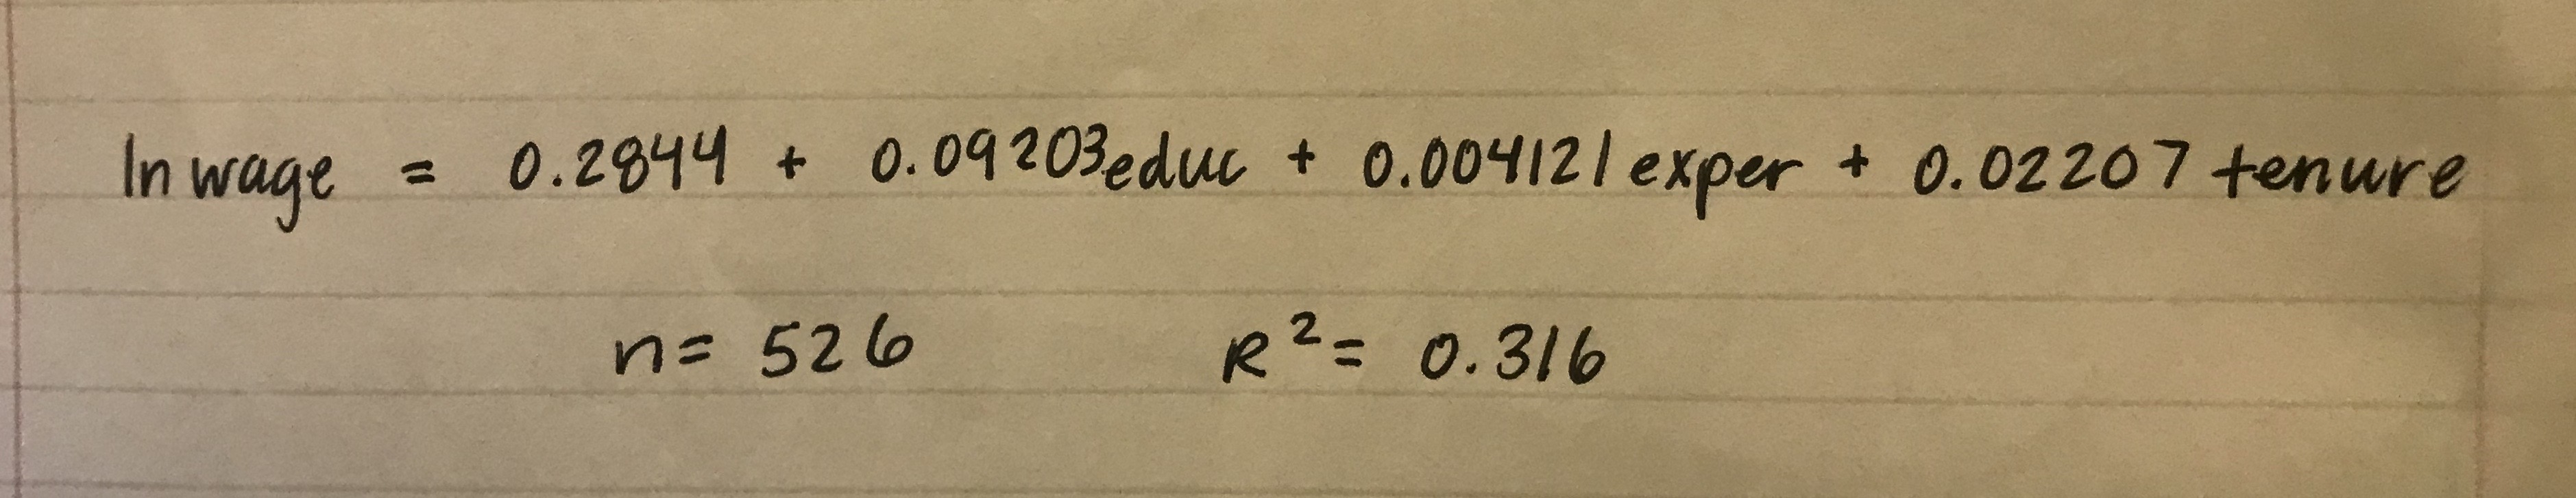 ln wage = 0.2844 + 0.09203educ + 0.004121 exper + 0.02207 tenure
n = 526 R² = 0.316